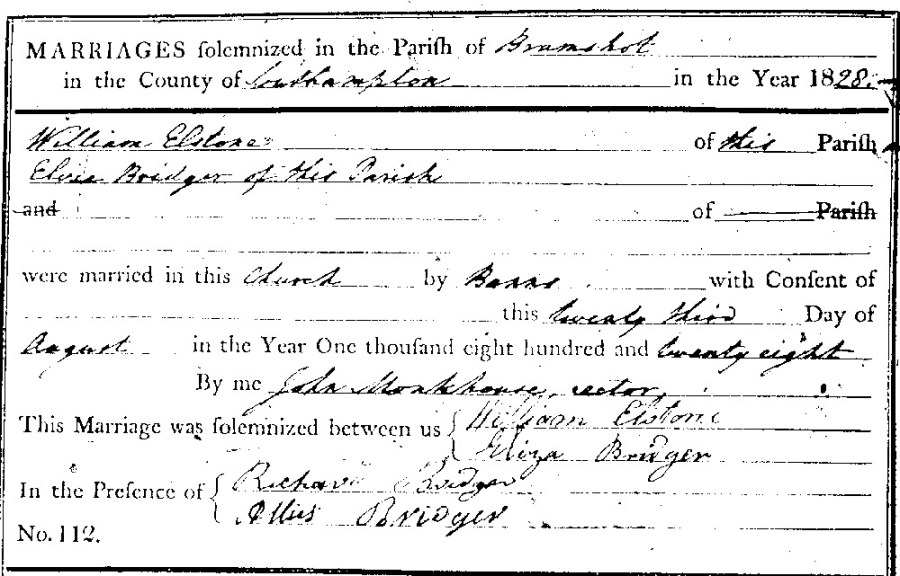 MARRIAGES ſolemnized in the Pariſh of Bramshot
in the County of Southampton in the Year 1828.
William Elstone of this Pariſh
Elvie Bridger of this Parish
and of Pariſh
were married in this Church by Banns with Conſent of
this twenty third Day of
August in the Year One thouſand eight hundred and twenty eight
By me John Monkhouse, rector,
This Marriage was ſolemnized between us { William Elstone
Eliza Bridger
In the Preſence of { Richard Bridger
Bridger
No. 112.